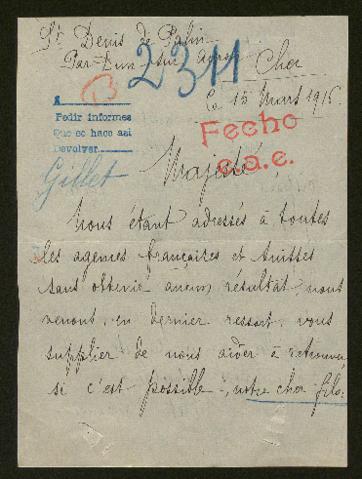 St Denis de Palin
Par Dun sur Auron
Cher
2311
Ce 15 Mars 1915.
A
Pedir informes
Que se hace así
Devolver
Fecho
e.a.e.
Gillet
Majesté,
Nous étant adressés à toutes
les agences françaises et suisses
sans obtenir aucun résultat, nous
venons, en dernier ressort, vous
supplier de nous aider à retrouver,
si c'est possible, notre cher fils